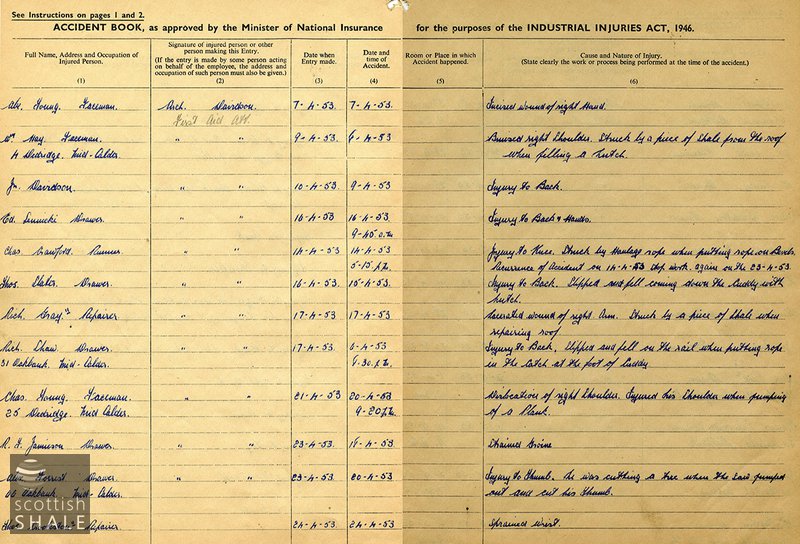 See Instructions on pages 1 and 2.
ACCIDENT BOOK, as approved by the Minister of National Insurance for the purposes of the INDUSTRIAL INJURIES ACT, 1946.
Full Name, Address and Occupation of Injured Person.
(1)
Signature of injured person or other person making this Entry.
(If the entry is made by some person acting on behalf of the employee, the address and occupation of such person must also be given.)
(2)
Date when Entry made.
(3)
Date and time of Accident.
(4)
Room or Place in which Accident happened.
(5)
Cause and Nature of Injury.
(State clearly the work or process being performed at the time of the accident.)
(6)
Alx. Young. Faceman. Arch. Davidson. 7-4-53. 7-4-53. Incised wound of right Hand.
First Aid Att.
Wm Hay. Faceman. " " 9-4-53. 8-4-53 Bruised right Shoulder. Struck by a piece of Shale from the roof
4 Dedridge. Mid-Calder. when filling a Hutch.
Jn. Davidson. " " 10-4-53. 9-4-53 Injury to Back.
Ed. Drawer. " " 16-4-53 16-4-53. Injury to Back & Hands.
9-45 a.m.
Chas. Crawford. Runner. " " 14-4-53 14-4-53 Injury to Knee. Struck by Haulage rope when putting rope on Bends.
5-15 p.m. Recurrence of Accident on 14-4-53 stop work. again on the 23-4-53.
Thos. Slater. Drawer. " " 16-4-53. 15-4-53. Injury to Back. Slipped and fell coming down the Cuddy with
hutch.
Rich. Gray Repairer " " 17-4-53 17-4-53. Lacerated wound of right Arm. Struck by a piece of Shale when
repairing roof.
Rich. Shaw. Drawer. " " 17-4-53. 6-4-53 Injury to Back. Slipped and fell on the rail when putting rope
31 Oakbank. Mid-Calder. 8.30 p.m. in the catch at the foot of Cuddy
Chas. Young. Faceman. " " 21-4-53 20-4-53 Dislocation of right Shoulder. Injured his Shoulder when jumping
25 Dedridge. Mid Calder. 9-20 p.m. of a Plank.
R. F. Jamieson. Drawer. " " 23-4-53. 18-4-53. Strained Groine
Alex Forrest. Drawer. " " 23-4-53 20-4-53. Injury to thumb. he was cutting a tree when the Saw jumped
66 Oakbank. Mid-Calder. out and cut his thumb.
Repairer " " 24-4-53 24-4-53. Sprained Wrist.
scottish
SHALE